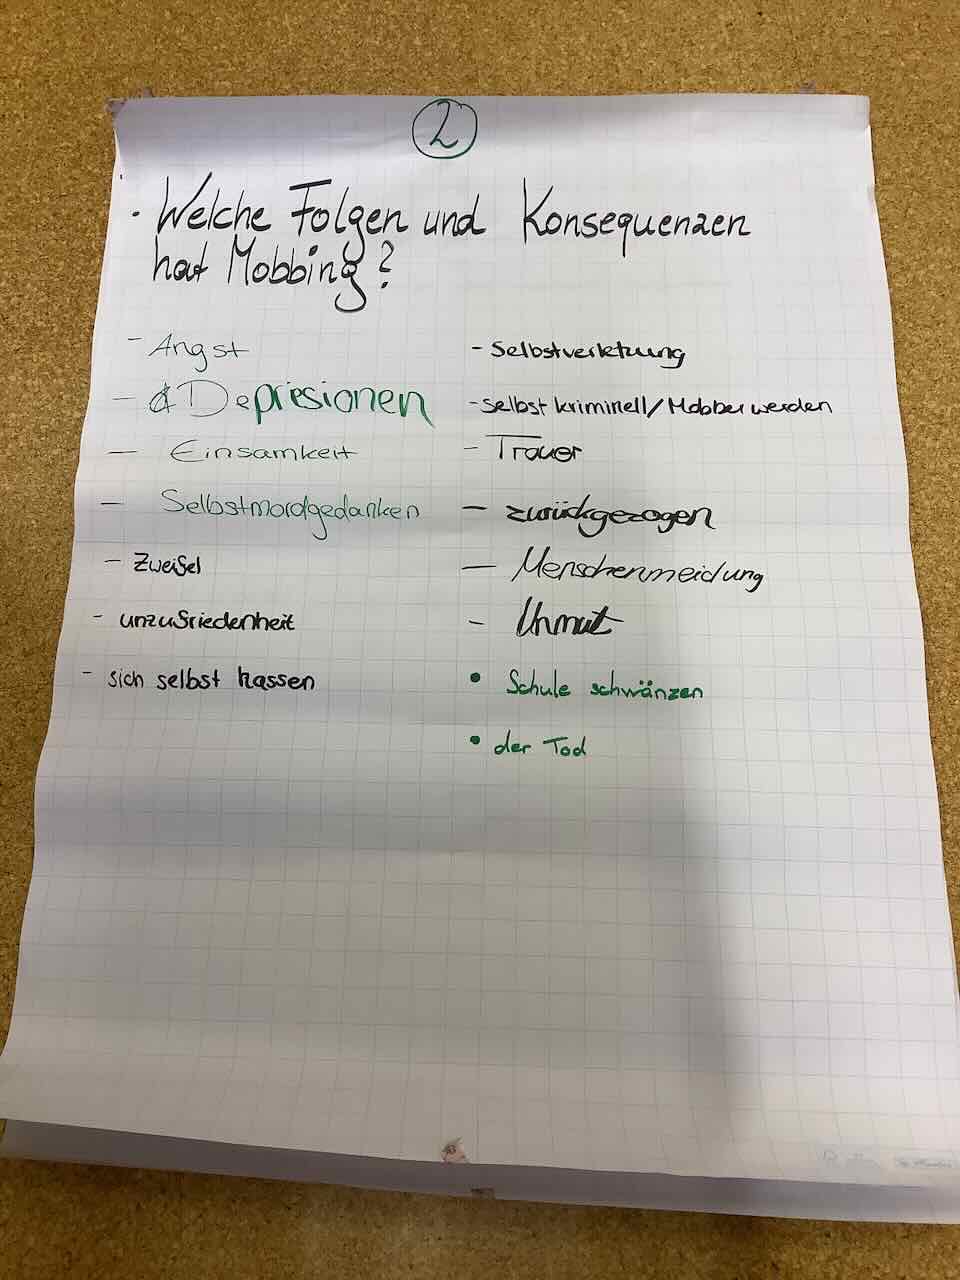 2
· Welche Folgen und Konsequenzen
hat Mobbing?
- Angst
- Depresionen
- Einsamkeit
- Selbstmordgedanken
- Zweifel
- unzufriedenheit
- sich selbst hassen
- Selbstverletzung
- selbst kriminell/Mobber werden
- Trauer
- zurückgezogen
- Menschenmeidung
- Unmut
• Schule schwänzen
• der Tod